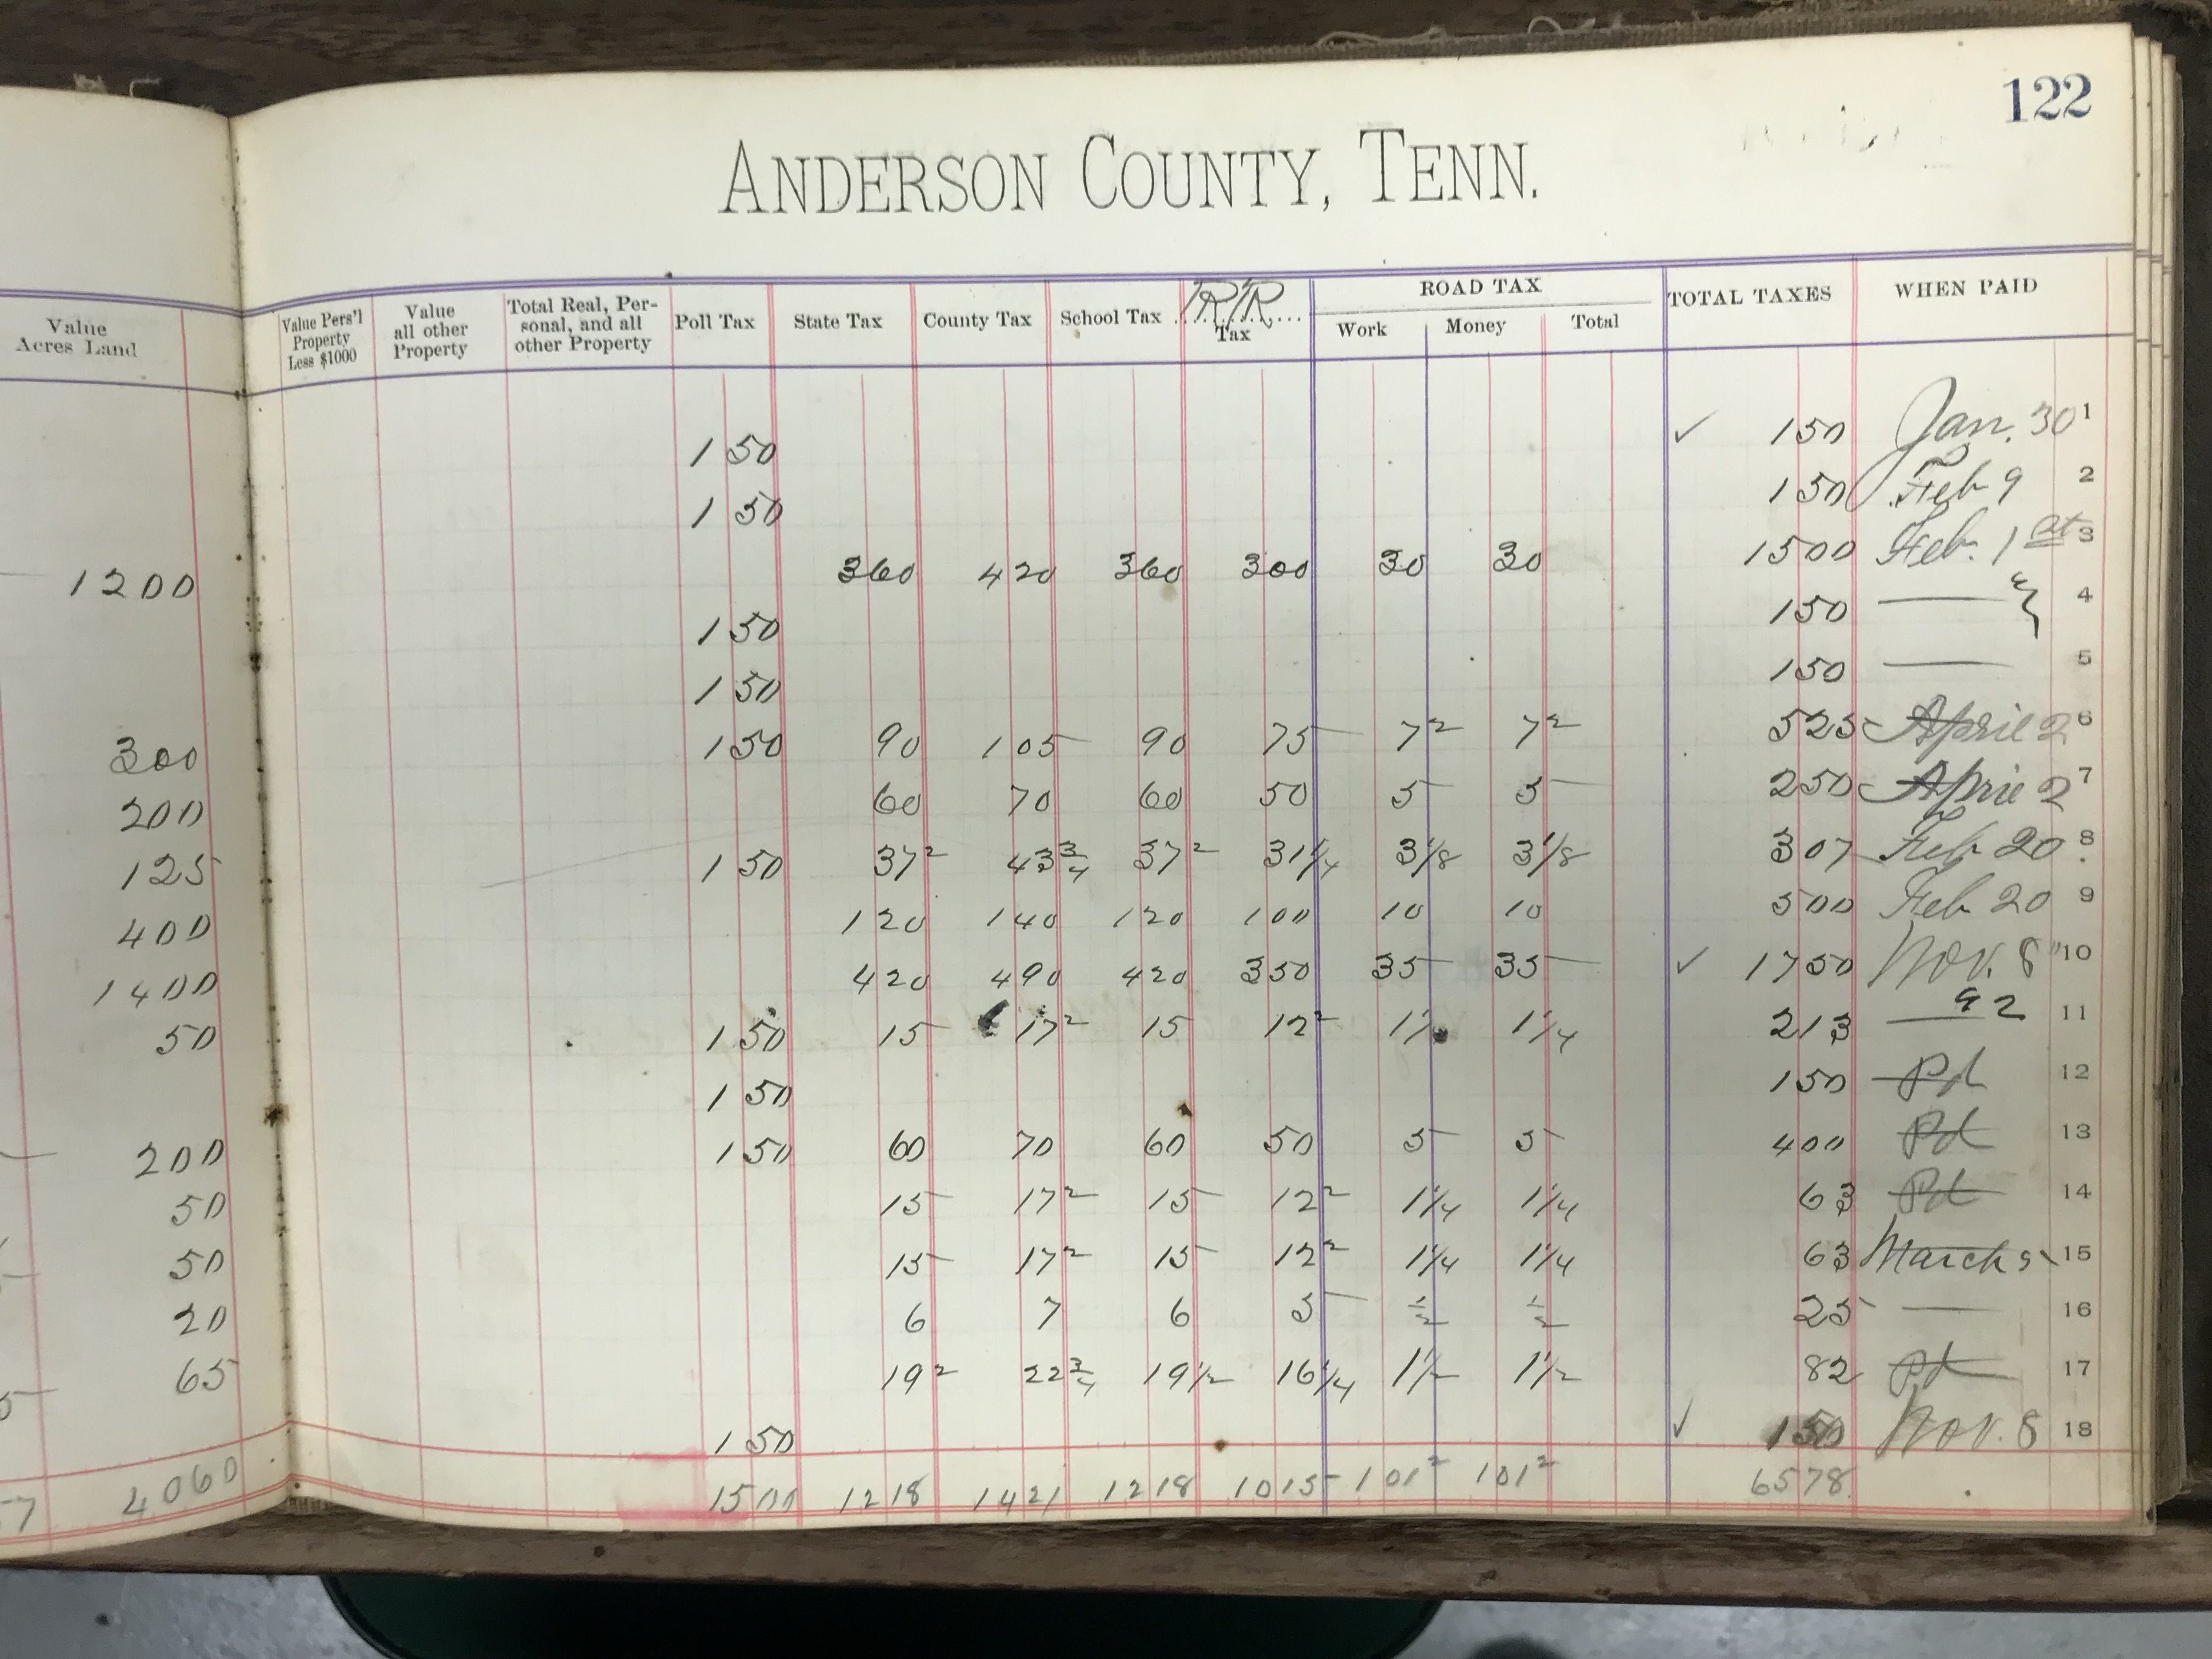 122
ANDERSON COUNTY, TENN.
Value Acres Land | Value Pers'l Property Less $1000 | Value all other Property | Total Real, Personal, and all other Property | Poll Tax | State Tax | County Tax | School Tax | RR Tax | ROAD TAX Work | Money | Total | TOTAL TAXES | WHEN PAID
1 50 ✓ 1 50 Jan. 30 1
1 50 1 50 Feb 9 2
1200 3 60 4 20 3 60 3 00 30 30 15 00 Feb. 1st 3
1 50 1 50 — 4
1 50 1 50 — 5
300 1 50 90 1 05 90 75 7² 7² 5 25 April 2 6
200 60 70 60 50 5 5 2 50 Aprie 2 7
125 1 50 37² 43 3/4 37² 31 1/4 3 1/8 3 1/8 3 07 Feb 20 8
400 1 20 1 40 1 20 1 00 10 10 5 00 Feb 20 9
1400 4 20 4 90 4 20 3 50 35 35 ✓ 17 50 Nov. 8" 10
50 1 50 15 17² 15 12² 1 1/4 2 13 — 92 11
1 50 1 50 Pd 12
200 1 50 60 70 60 50 5 5 4 00 Pd 13
50 15 17² 15 12² 1 1/4 1 1/4 63 Pd 14
50 15 17² 15 12² 1 1/4 1 1/4 63 March 5 15
20 6 7 6 5 1/2 1/2 25 — 16
65 19² 22 3/4 19 1/2 16 1/4 1 1/2 1 1/2 82 pd 17
1 50 ✓ 1 50 Nov. 8 18
7 4060 15 00 12 18 14 21 12 18 10 15 1 01² 1 01² 65 78